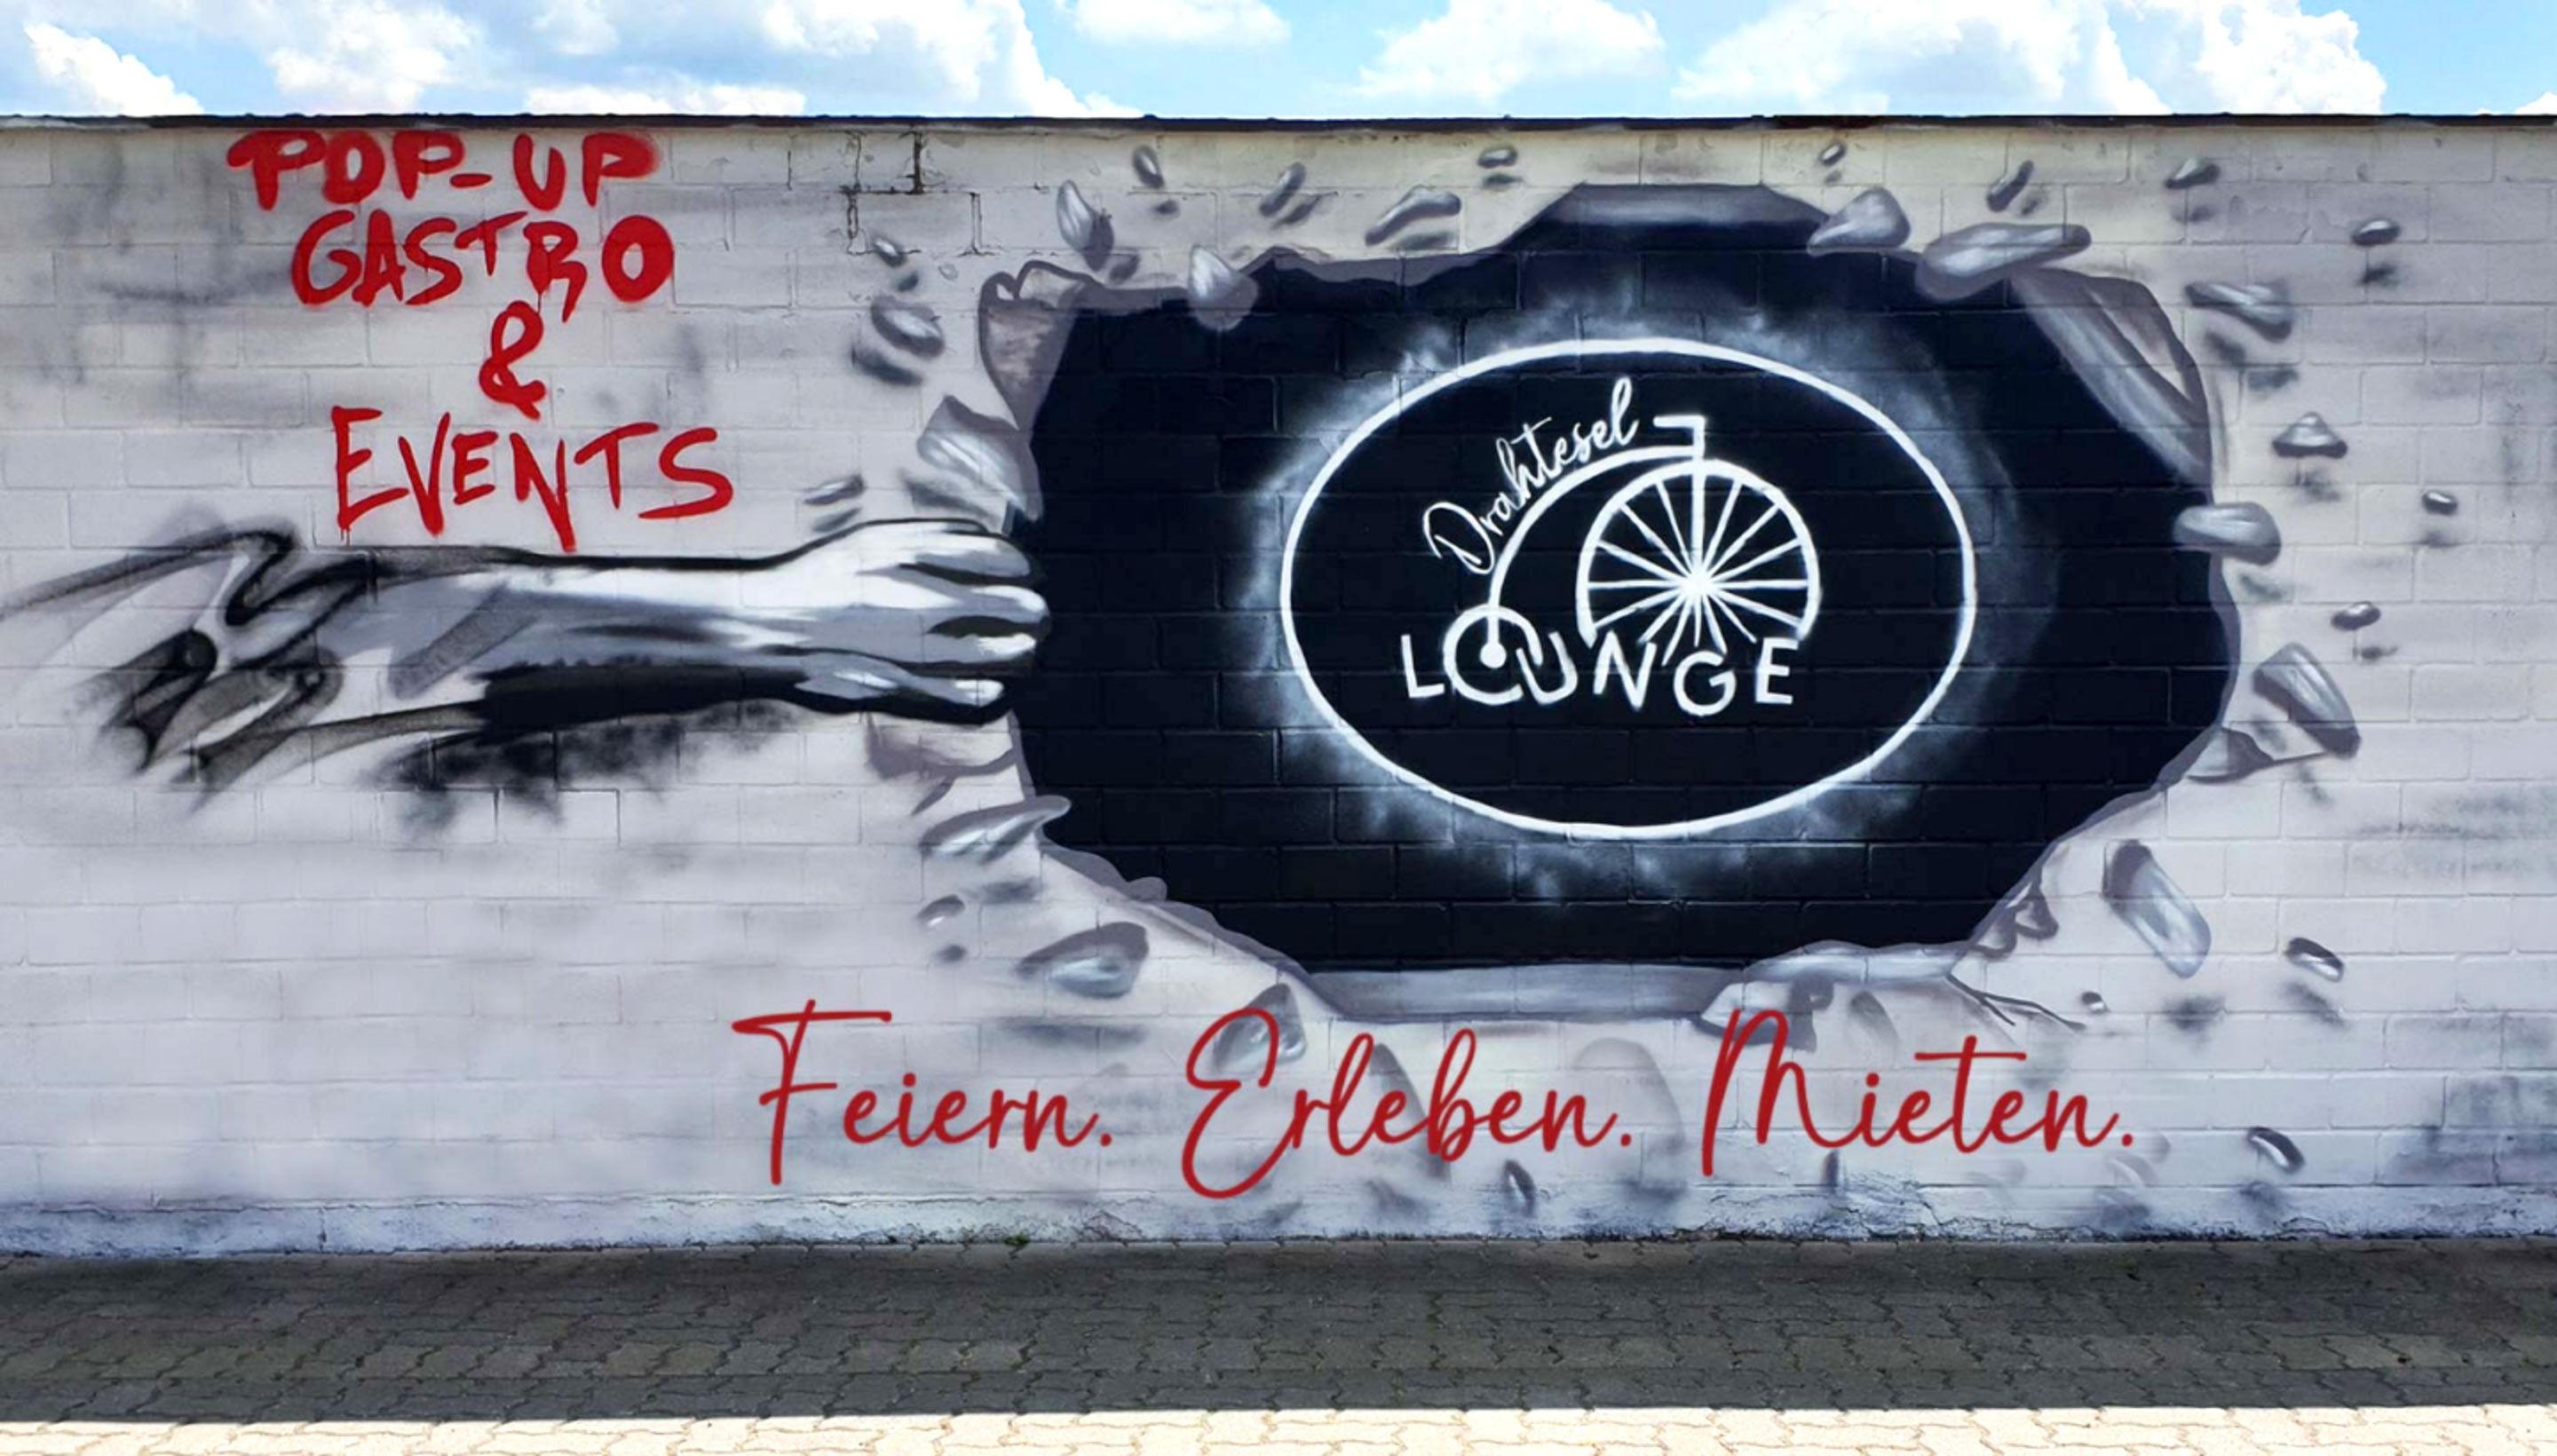 POP-UP
GASTRO
&
EVENTS
Drahtesel
LOUNGE
Feiern. Erleben. Mieten.